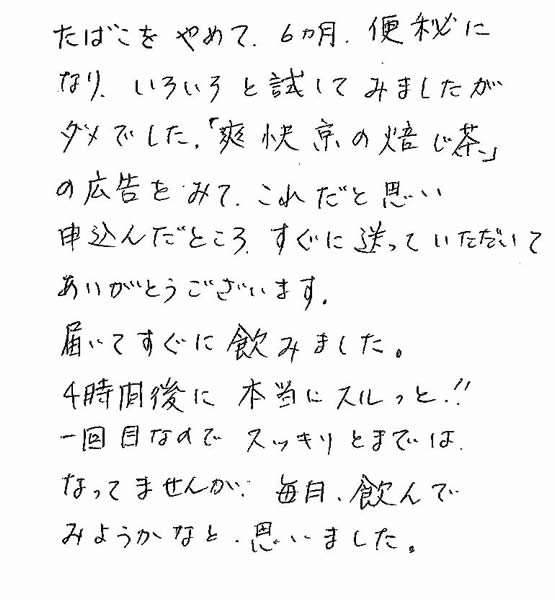 たばこをやめて、6カ月、便秘に
なり、いろいろと試してみましたが
ダメでした。「爽快京の焙じ茶」
の広告をみて、これだと思い
申込んだところ、すぐに送っていただいて
ありがとうございます。
届いてすぐに飲みました。
4時間後に本当にスルっと!!
一回目なのでスッキリとまでは、
なってませんが、毎日、飲んで
みようかなと、思いました。